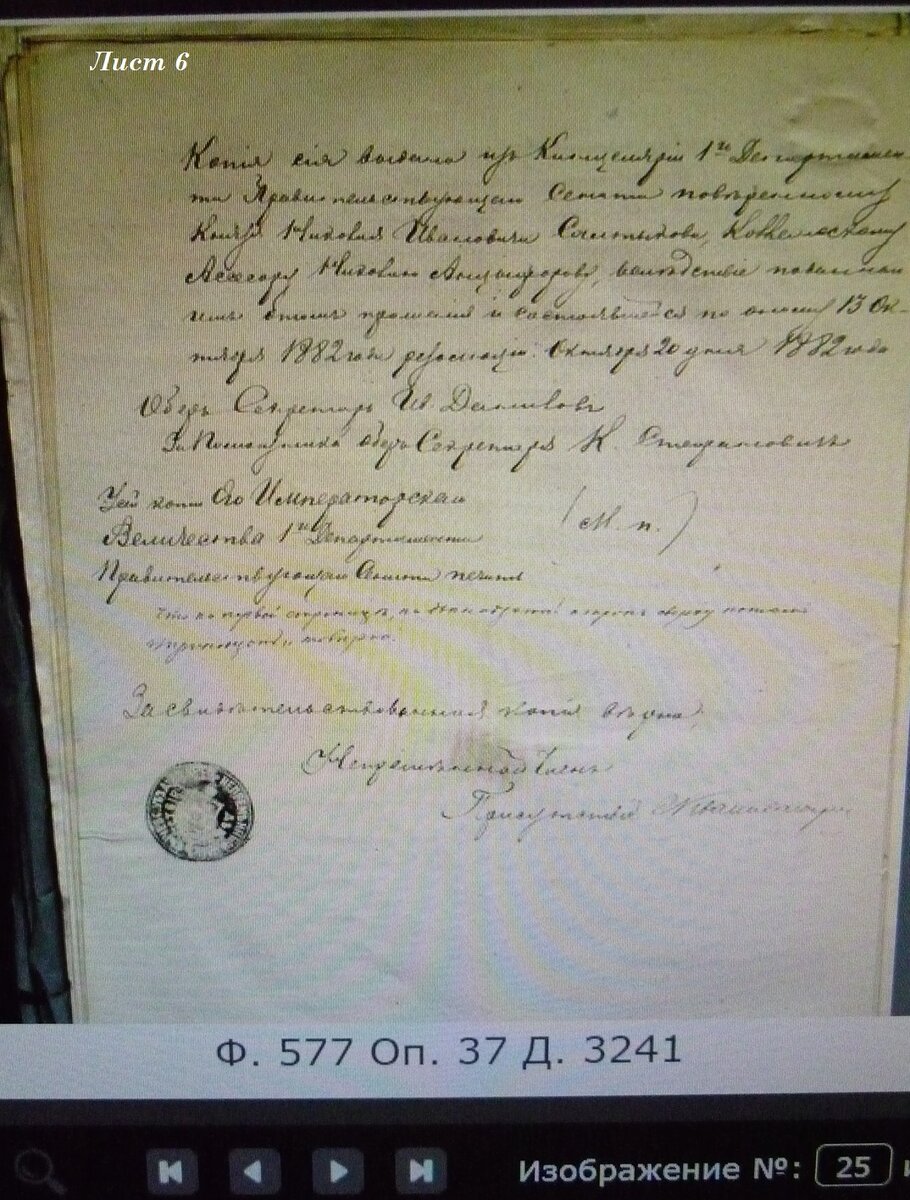 Лист 6
Копія сія выдана изъ Канцеляріи 1го Департамен-
та Правительствующаго Сената повѣренному
Князя Николая Ивановича Салтыкова, Коллежскому
Ассесору Николаю Анциферову, вслѣдствіе поданнаго
имъ о томъ прошенія и состоявшейся по оному 13 Ок-
тября 1882 года резолюціи. Октября 20 дня 1882 года
Оберъ Секретарь Ив. Даниловъ
За Помощника Оберъ Секретаря К. Стефановичъ
У сей копіи Его Императорскаго
Величества 1го Департамента
(М. п.)
Правительствующаго Сената печать
Что на первой страницѣ, на
Засвидѣтельствованная копія вѣрна:
Непремѣнный Членъ
Присутствія
Ф. 577 Оп. 37 Д. 3241
Изображение №: 25 и